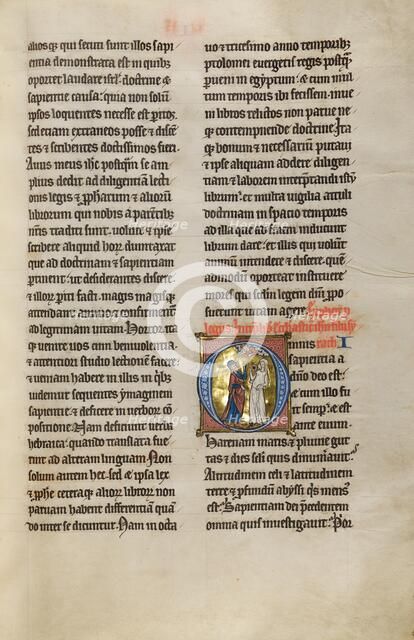 alios q; qui secuti sunt illos sapi
entia demonstrata est in quib;
oportet laudare isrl' doctrine &
sapientie causa: quia non solum
ipsos loquentes necesse est
sed etiam extraneos posse & discen
tes & scribentes doctissimos fieri
Auus meus ihc postqm se am
plius dedit ad diligentiam lecti
onis legis & prophetarum & aliorum
librorum qui nobis a parentib;
nostris traditi sunt: uoluit & ipse
scribere aliquid horum dumtaxat
que ad doctrinam & sapientiam
pertinent: ut desiderantes discere
& illorum periti facti magis magisq;
attendant animo & confirmentur
ad legitimam uitam. Hortor ita
que uenire uos cum beniuolentia
& attentiori studio lectionem facere
& ueniam habere in illis in quib;
uidemur sequentes ymaginem
sapientie & deficere in uerborum com
positione. Nam deficiunt uerba
hebraica: quando translata fue
rint ad alteram linguam. Non
solum autem hec sed & ipsa lex
& prophete ceteraque aliorum librorum non
paruam habent differentiam quan
do inter se dicuntur. Nam in octa
uo & tricesimo anno temporib;
ptolomei euergetis regis postqm
perueni in egyptum: & cum mul
tum temporis ibi fecissem: inue
ni libros relictos non parue ne
que contempnende doctrine. Ita
que bonum & necessarium putaui
& ipse aliquam addere diligen
tiam & laborem interpretandi istum
librum: & multa uigilia attuli
doctrinam in spacio temporis
ad illa que ad finem ducunt
librum dare: & illis qui uolunt
animum intendere & discere quem
admodum oporteat instruere
mores qui secundum legem domini propo
suerint uitam agere.
O
mnis
sapientia a
domino deo est:
& cum illo fu
it semper: & est
ante euum.
Harenam maris & pluuie gut
tas & dies seculi quis dinumerauit?
Altitudinem celi & latitudinem
terre & profundum abyssi quis mensus
est? Sapientiam dei precedentem
omnia quis inuestigauit? Pri
Heritage
Heritage